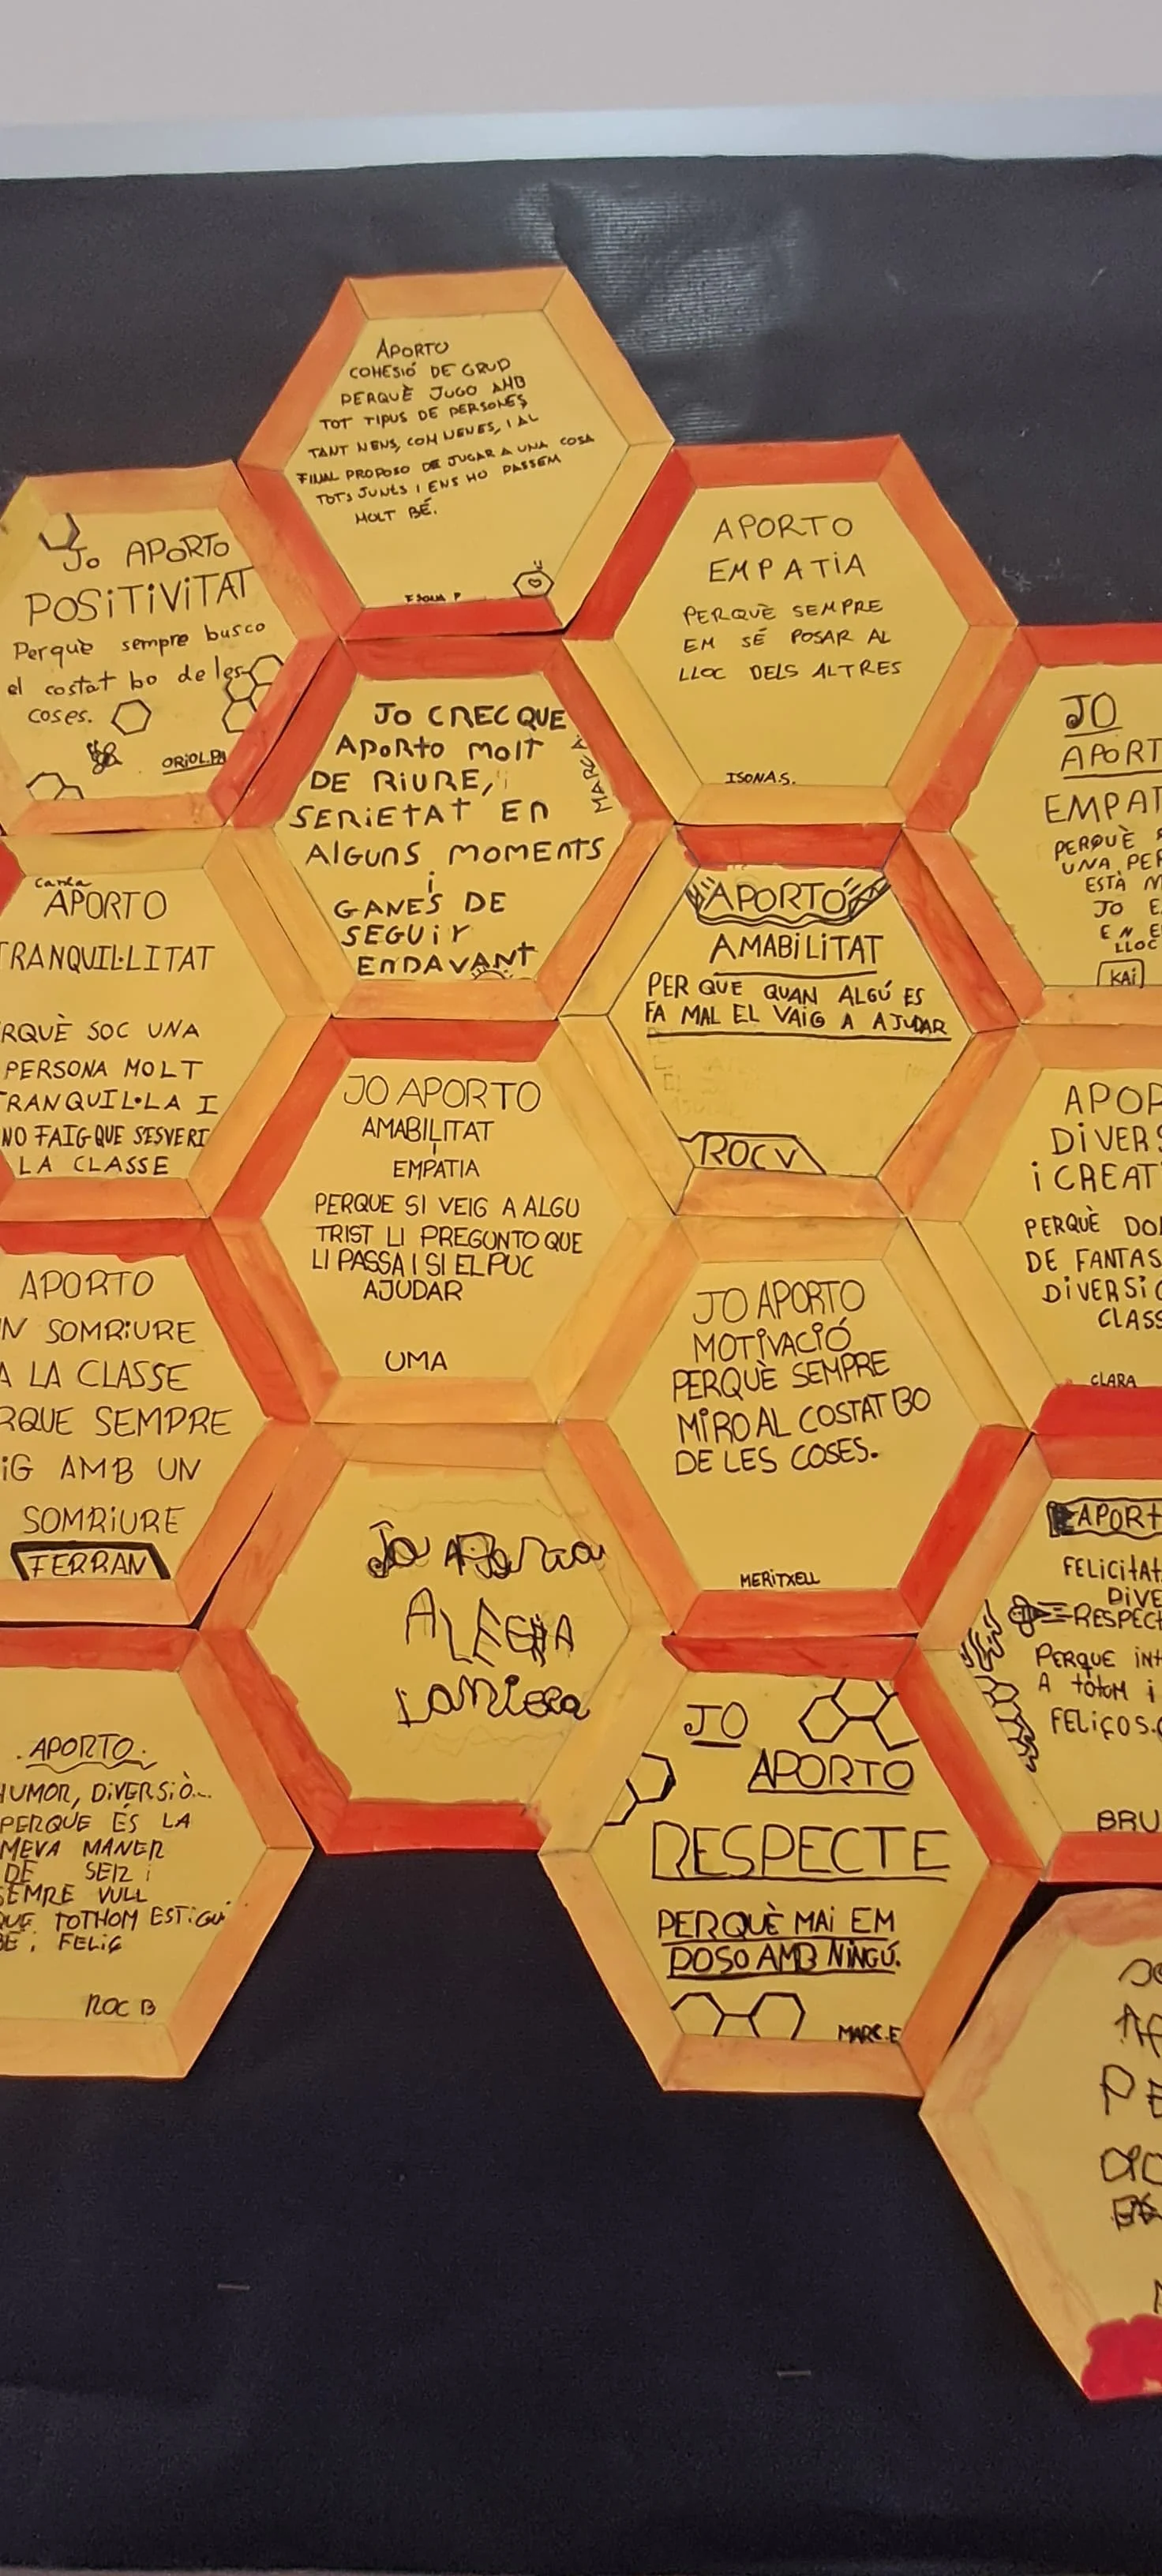 APORTO
COHESIÓ DE GRUP
PERQUÈ JUGO AMB
TOT TIPUS DE PERSONES
TANT NENS, COM NENES, I AL
FINAL PROPOSO DE JUGAR A UNA COSA
TOTS JUNTS I ENS HO PASSEM
MOLT BÉ.
Jo APORTO
POSITIVITAT
Perquè sempre busco
el costat bo de les
coses.
ORIOL.PA
APORTO
EMPATIA
PERQUÈ SEMPRE
EM SÉ POSAR AL
LLOC DELS ALTRES
ISONA S.
JO CREC QUE
APORTO MOLT
DE RIURE,
SERIETAT EN
ALGUNS MOMENTS
i
GANES DE
SEGUIR
ENDAVANT
MARC A.
JO
APORT
EMPAT
PERQUÈ
UNA PER
ESTÀ M
JO E
EN E
LLOC
KAI
Carla
APORTO
TRANQUIL·LITAT
RQUÈ SOC UNA
PERSONA MOLT
TRANQUIL·LA I
NO FAIG QUE S'ESVERI
LA CLASSE
APORTO
AMABILITAT
PER QUE QUAN ALGÚ ES
FA MAL EL VAIG A AJUDAR
ROC V
JO APORTO
AMABILITAT
I
EMPATIA
PERQUE SI VEIG A ALGU
TRIST LI PREGUNTO QUE
LI PASSA I SI EL PUC
AJUDAR
UMA
APOR
DIVERS
i CREAT
PERQUÈ DO
DE FANTAS
DIVERSIÓ
CLASS
CLARA
APORTO
N SOMRIURE
A LA CLASSE
RQUE SEMPRE
iG AMB UN
SOMRIURE
FERRAN
JO APORTO
MOTIVACIÓ
PERQUÈ SEMPRE
MIRO AL COSTAT BO
DE LES COSES.
MERITXELL
Jo
APORT
FELICITAT
DIVE
RESPECT
PERQUE INT
A TOTOM i
FELIÇOS.
BRU
.APORTO.
HUMOR, DIVERSIÒ...
PERQUÈ ÉS LA
MEVA MANER
DE SER i
SEMRE VULL
QUE TOTHOM ESTiGUi
BÉ i FELIÇ
ROC B
JO
APORTO
RESPECTE
PERQUÈ MAI EM
POSO AMB NINGÚ.
MARC.E
PE